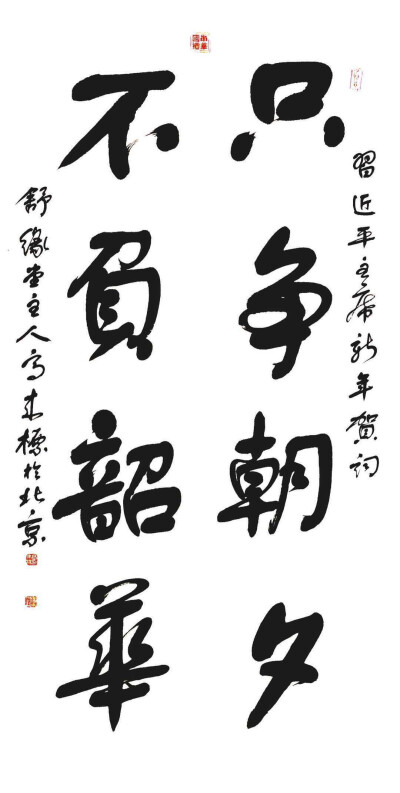 習近平主席新年賀詞
只争朝夕
不負韶華
舒緣堂主人高来標於北京